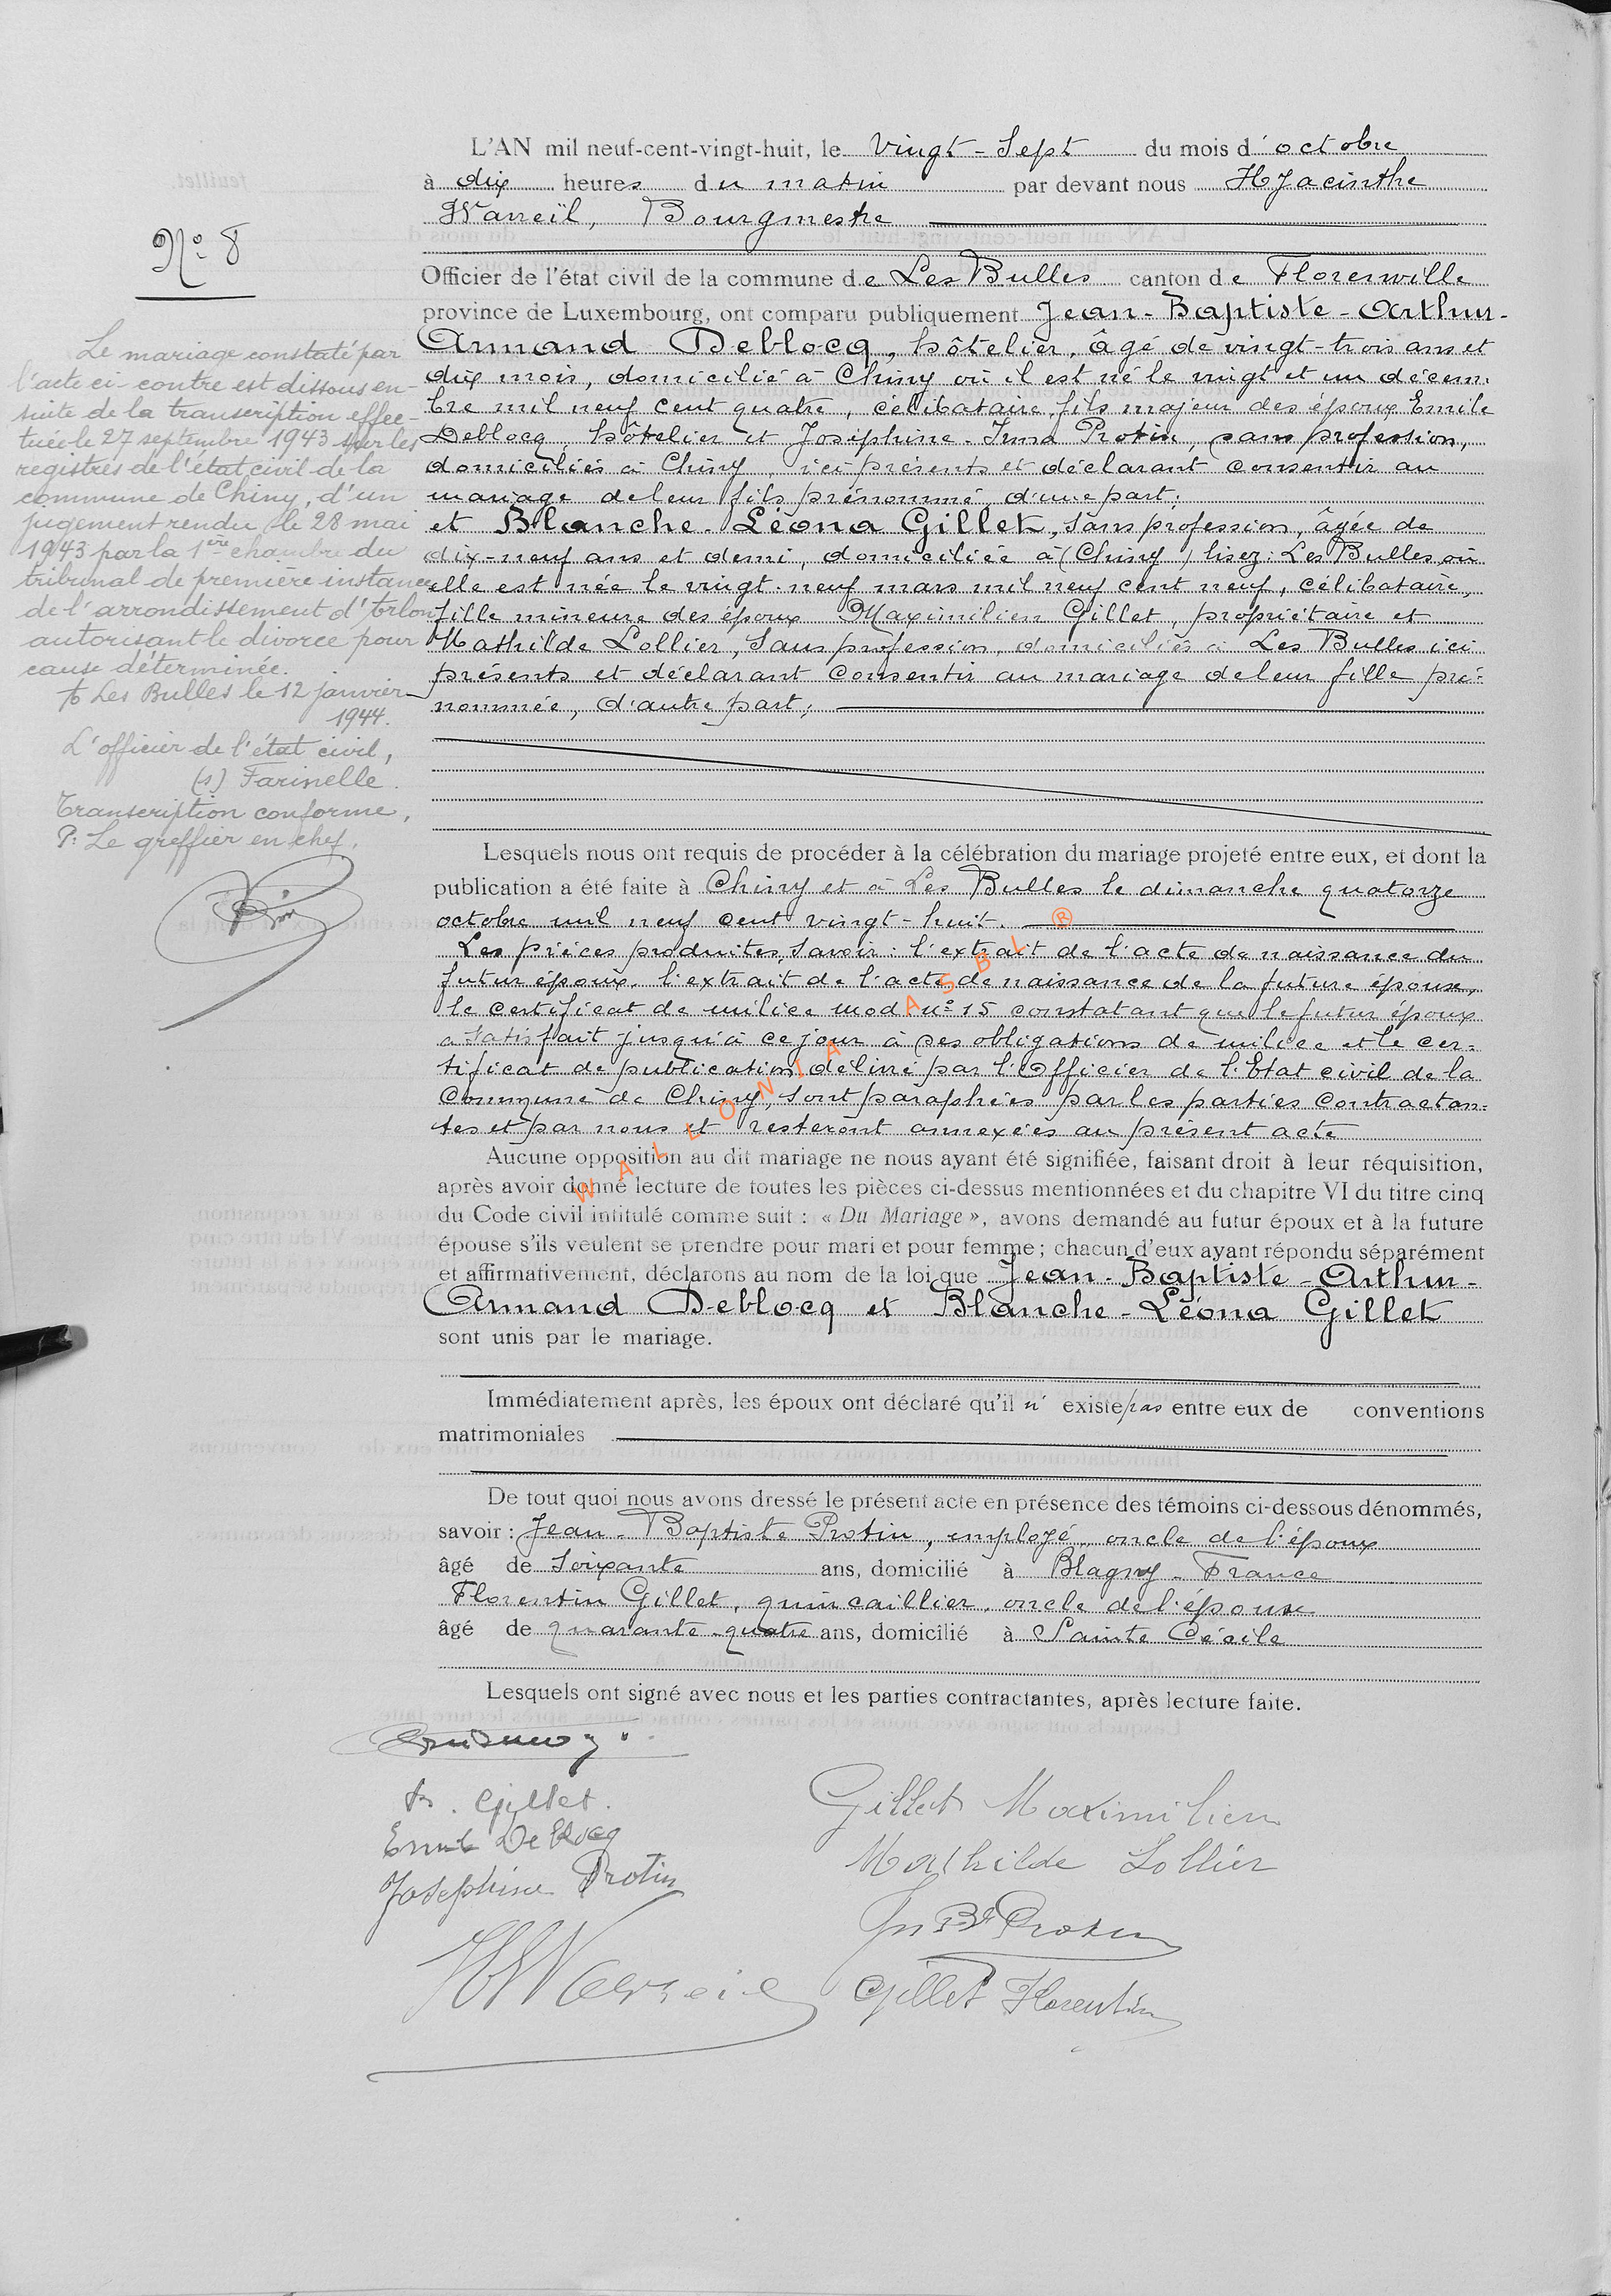 L'AN mil neuf-cent-vingt-huit, le Vingt-Sept du mois d'octobre
à dix heures du matin par devant nous Hyacinthe
Warreil, Bourgmestre
Officier de l'état civil de la commune de Les Bulles canton de Florenville
province de Luxembourg, ont comparu publiquement Jean-Baptiste-Arthur-
Armand Deblocq, hôtelier, âgé de vingt-trois ans et
dix mois, domicilié à Chiny où il est né le vingt et un décem-
bre mil neuf cent quatre, célibataire, fils majeur des époux Emile
Deblocq, hôtelier et Joséphine-Irma Protin, sans profession,
domiciliés à Chiny, ici présents et déclarant consentir au
mariage de leur fils prénommé, d'une part;
et Blanche-Léona Gillet, sans profession, âgée de
dix-neuf ans et demi, domiciliée à (Chiny) lisez: Les Bulles, où
elle est née le vingt-neuf mars mil neuf cent neuf, célibataire,
fille mineure des époux Maximilien Gillet, propriétaire et
Mathilde Lollier, sans profession, domiciliés à Les Bulles ici
présents et déclarant consentir au mariage de leur fille pré-
nommée, d'autre part;
Lesquels nous ont requis de procéder à la célébration du mariage projeté entre eux, et dont la
publication a été faite à Chiny et à Les Bulles le dimanche quatorze
octobre mil neuf cent vingt-huit.
Les pièces produites, savoir: l'extrait de l'acte de naissance du
futur époux, l'extrait de l'acte de naissance de la future épouse,
le certificat de milice mod. n° 15 constatant que le futur époux
a satisfait jusqu'à ce jour à ses obligations de milice et le cer-
tificat de publication délivré par l'Officier de l'Etat civil de la
Commune de Chiny, sont paraphées par les parties contractan-
tes et par nous et resteront annexées au présent acte
Aucune opposition au dit mariage ne nous ayant été signifiée, faisant droit à leur réquisition,
après avoir donné lecture de toutes les pièces ci-dessus mentionnées et du chapitre VI du titre cinq
du Code civil intitulé comme suit : « Du Mariage », avons demandé au futur époux et à la future
épouse s'ils veulent se prendre pour mari et pour femme ; chacun d'eux ayant répondu séparément
et affirmativement, déclarons au nom de la loi que Jean-Baptiste-Arthur-
Armand Deblocq et Blanche-Léona Gillet
sont unis par le mariage.
Immédiatement après, les époux ont déclaré qu'il n'existe pas entre eux de conventions
matrimoniales
De tout quoi nous avons dressé le présent acte en présence des témoins ci-dessous dénommés,
savoir : Jean-Baptiste Protin, employé, oncle de l'époux
âgé de soixante ans, domicilié à Blagny-France
Florentin Gillet, quincaillier, oncle de l'épouse
âgé de quarante-quatre ans, domicilié à Sainte Cécile
Lesquels ont signé avec nous et les parties contractantes, après lecture faite.
B. Gillet.
Emile Deblocq
Joséphine Protin
HWarreil
Gillet Maximilien
Mathilde Lollier
Jn Bte Protin
Gillet Florentin
N° 8
Le mariage constaté par
l'acte ci-contre est dissous en-
suite de la transcription effec-
tuée le 27 septembre 1943 sur les
registres de l'état civil de la
commune de Chiny, d'un
jugement rendu le 28 mai
1943 par la 1ère chambre du
tribunal de première instance
de l'arrondissement d'Arlon
autorisant le divorce pour
cause déterminée.
A Les Bulles le 12 janvier
1944.
L'officier de l'état civil,
(s) Farinelle.
Transcription conforme,
P. Le greffier en chef,
WALLONIA ASBL ®